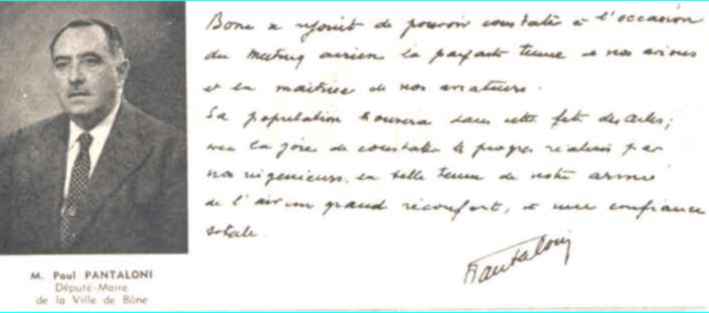 Bône se réjouit de pouvoir constater à l'occasion
du meeting aérien la parfaite tenue de nos avions
et la maîtrise de nos aviateurs.
Sa population trouvera dans cette fête des ailes,
avec la joie de constater le progrès réalisés par
nos ingénieurs, la belle tenue de notre armée
de l'air un grand réconfort, et une confiance
totale.
Pantaloni
M. Paul PANTALONI
Député-Maire
de la Ville de Bône